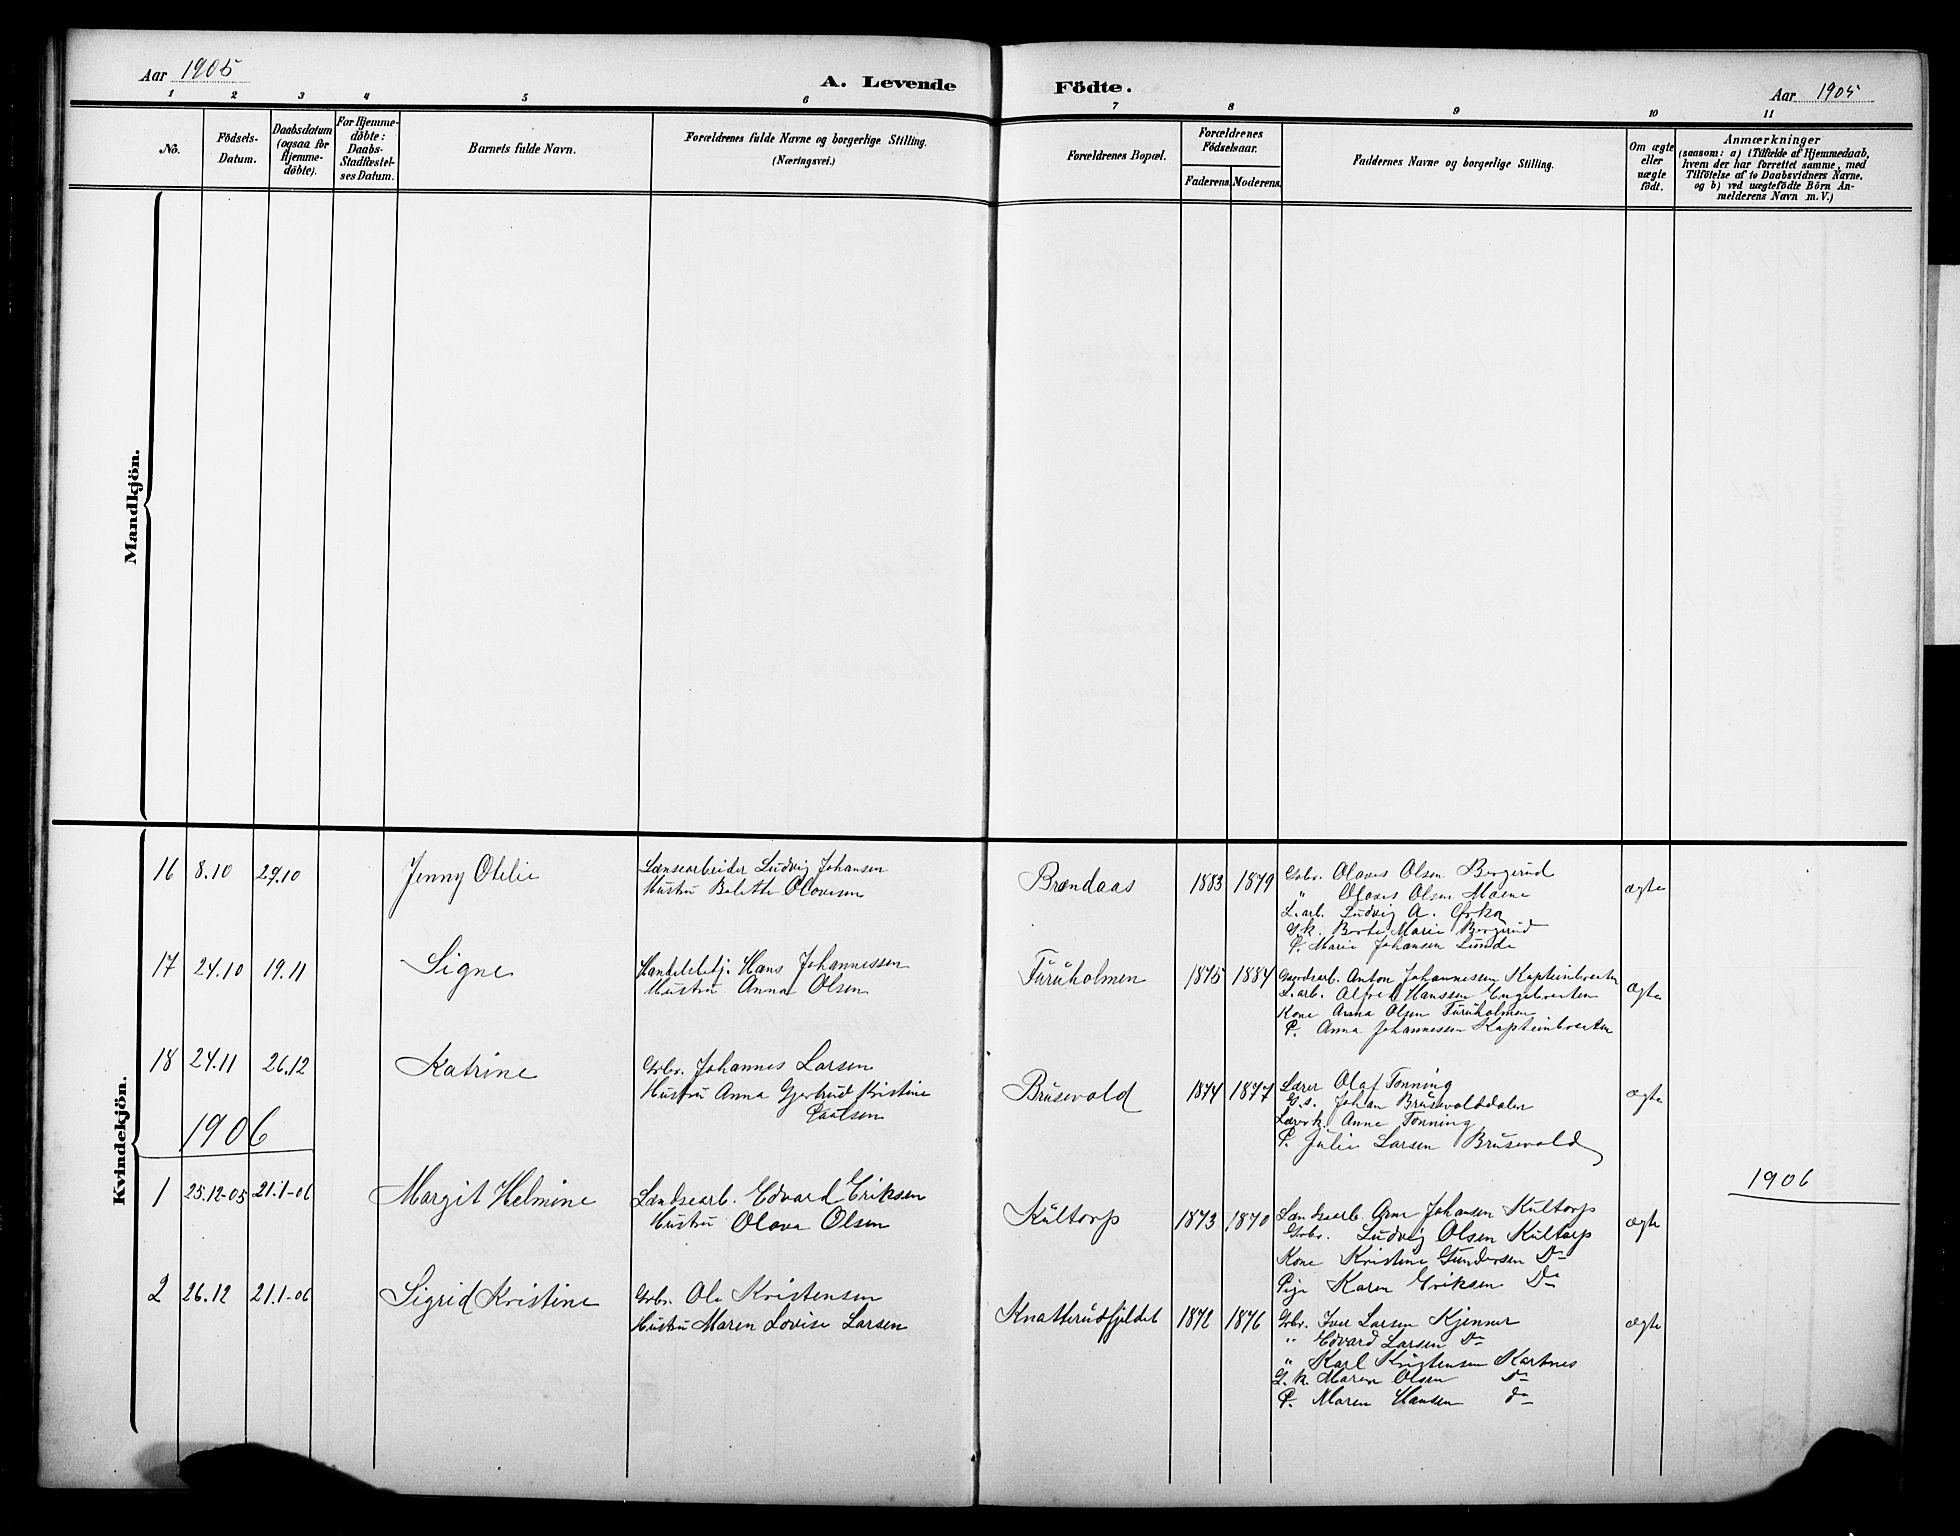 Aar 1905
A. Levende
Födte.
Aar 1905
1 2 3 4 5 6 7 8 9 10 11
No.
Födsels-
Datum.
Daabsdatum
(ogsaa for
Hjemme-
döbte).
For Hjemme-
döbte:
Daabs-
Stadfæstel-
ses Datum.
Barnets fulde Navn.
Forældrenes fulde Navne og borgerlige Stilling.
(Næringsvei.)
Forældrenes Bopæl.
Forældrenes
Födselsaar.
Faderens. Moderens.
Faddernes Navne og borgerlige Stilling.
Om ægte
eller
uægte
födt.
Anmærkninger
(saasom: a) i Tilfælde af Hjemmedaab,
hvem der har forrettet samme, med
Tilföielse af to Daabsvidners Navne,
og b) ved uægtefödte Börn An-
melderens Navn m. V.)
Mandkjön.
Kvindekjön.
16 8.10 29.10 Jenny Otilie
Lænsearbeider Ludvig Johansen
Hustru Bolette Olovesen
Brændaas 1883 1879
Gbr. Olaves Olsen Bergerud
" Olaves Olsen Moene
L.arb. Ludvig A.
G.k. Berte Marie Bergerud
P. Marie Johansen Lunde
ægte
17 24.10 19.11 Signe
Handelsbetj. Hans Johannessen
Hustru Anna Olsen
Furuholmen 1875 1884
Gaardsarb. Anton Johannessen Kapteinbraaten
L.arb. Alfred Hanssen Engebraaten
Kone Anna Olsen Furuholmen
P. Anna Johannessen Kapteinbraaten
Ægte
18 24.11 26.12 Katrine
Gbr. Johannes Larsen
Hustru Anna Gjertrud Kristine
Paulsen
Brusevold 1874 1877
Lærer Olaf Tonning
G.s. Johan Brusevolddalen
Lærerk. Anne Tonning
P. Julie Larsen Brusevold
ægte
1906
1906
1 25.12-05 21.1-06 Margit Helmine
Lændsearb. Edvard Eriksen
Hustru Olava Olsen
Kultorp 1873 1870
Lændsearb. Arne Johansen Kultorp
Gbr. Ludvig Olsen Kultorp
Kone Kristine Gundersen Do
Pige Karen Eriksen Do
ægte
2 26.12 21.1-06 Sigrid Kristine
Gbr. Ole Kristensen
Hustru Maren Lovise Larsen
Knatterudfjeldet 1872 1876
Gbr. Iver Larsen Kjenner
" Edvard Larsen Do
" Karl Kristensen Kartnes
G.k. Maren Olsen Do
P. Maren Hansen do
ægte